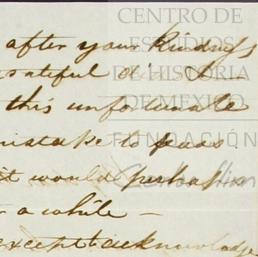 after your kindness
grateful
this unfortunate
mistake to pass
it would perhaps
a while —
except to acknowledge
CENTRO DE
ESTUDIOS
DE HISTORIA
DE MEXICO
FUNDACIÓN